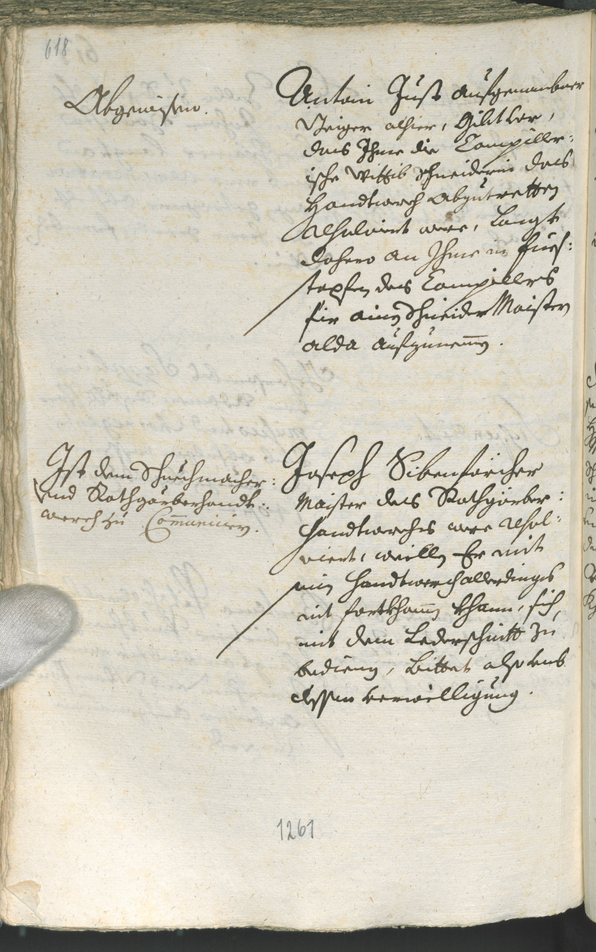 618
Abgewisen.
Antoni Just aufgenombner
Steiger alhier,
das Ihme die Campiller:
ische Wittib Schneiderin das
Handtwerch Abzutretten
resolviert were, Langt
dahero an Ihme in fues:
stapfen des Campillers
für ainen Schneider Maister
alda aufzunemen.
Ist dem Schuechmacher:
und Rothgärberhandt:
werch zu Comunicirn.
Joseph Sibenförcher
Maister des Rothgärber:
handtwerchs were resol:
viert, weillen Er mit
sein Handtwerch allerdings
nit fortkhomen khann, sich
mit dem Lederschnitt zu
bedienen, Bittet also umb
dessen verwilligung.
1261